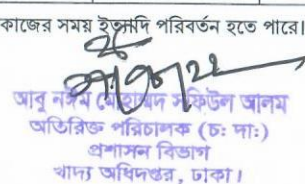 কাজের সময় ইত্যাদি পরিবর্তন হতে পারে।
আবু নঈম মোহাম্মদ সফিউল আলম
অতিরিক্ত পরিচালক (চঃ দাঃ)
প্রশাসন বিভাগ
খাদ্য অধিদপ্তর, ঢাকা।